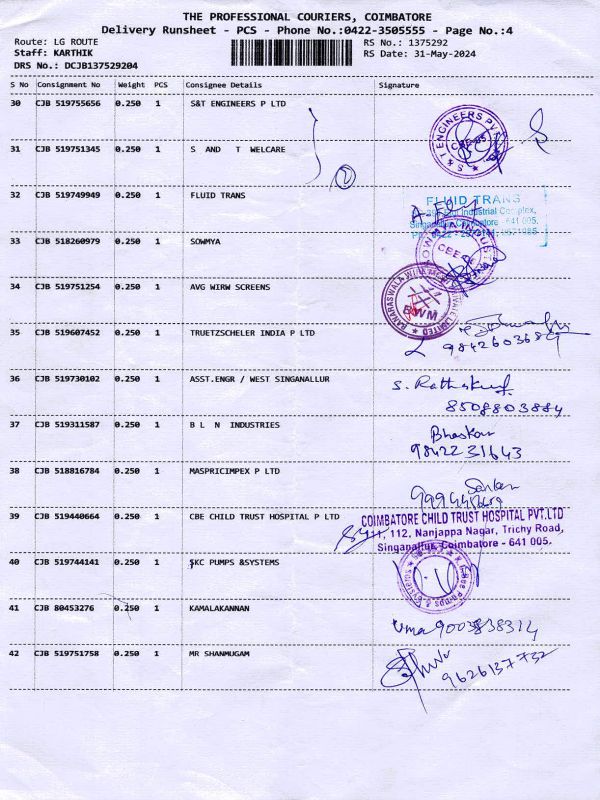 THE PROFESSIONAL COURIERS, COIMBATORE
Delivery Runsheet - PCS - Phone No.:0422-3505555 - Page No.:4
Route: LG ROUTE RS No.: 1375292
Staff: KARTHIK RS Date: 31-May-2024
DRS No.: DCJB137529204
S No Consignment No Weight PCS Consignee Details Signature
30 CJB 519755656 0.250 1 S&T ENGINEERS P LTD
S & T ENGINEERS PVT CBE-05
31 CJB 519751345 0.250 1 S AND T WELCARE
2
32 CJB 519749949 0.250 1 FLUID TRANS
FLUID TRANS
Industrial Complex,
641 005.
33 CJB 518260979 0.250 1 SOWMYA
34 CJB 519751254 0.250 1 AVG WIRW SCREENS
BWM
35 CJB 519607452 0.250 1 TRUETZSCHELER INDIA P LTD
36 CJB 519730102 0.250 1 ASST.ENGR / WEST SINGANALLUR
8508803884
37 CJB 519311587 0.250 1 B L N INDUSTRIES
Bhaskar
9842231643
38 CJB 518816784 0.250 1 MASPRICIMPEX P LTD
39 CJB 519440664 0.250 1 CBE CHILD TRUST HOSPITAL P LTD
COIMBATORE CHILD TRUST HOSPITAL PVT.LTD
112, Nanjappa Nagar, Trichy Road,
Singanallur, Coimbatore - 641 005.
40 CJB 519744141 0.250 1 SKC PUMPS &SYSTEMS
Pumps & Systems
41 CJB 80453276 0.250 1 KAMALAKANNAN
Uma 9003838314
42 CJB 519751758 0.250 1 MR SHANMUGAM
9626137732